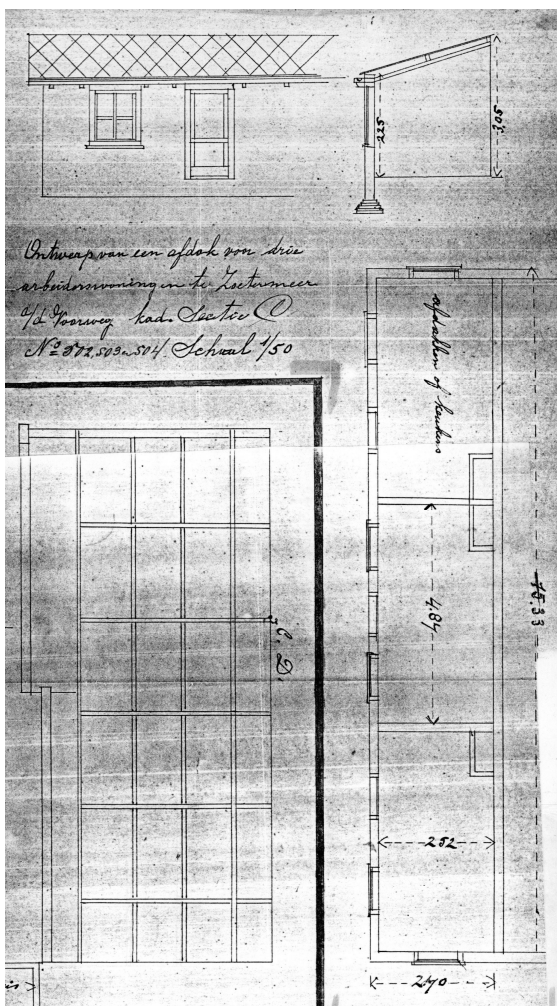 225
3,05
Ontwerp van een afdak voor drie
arbeiderswoningen te Zoetermeer
a/d Voorweg kad. Sectie C
Nº 502, 503 en 504. Schaal 1/50
afdakken of keukens
4.84
15.33
C. D.
252
270